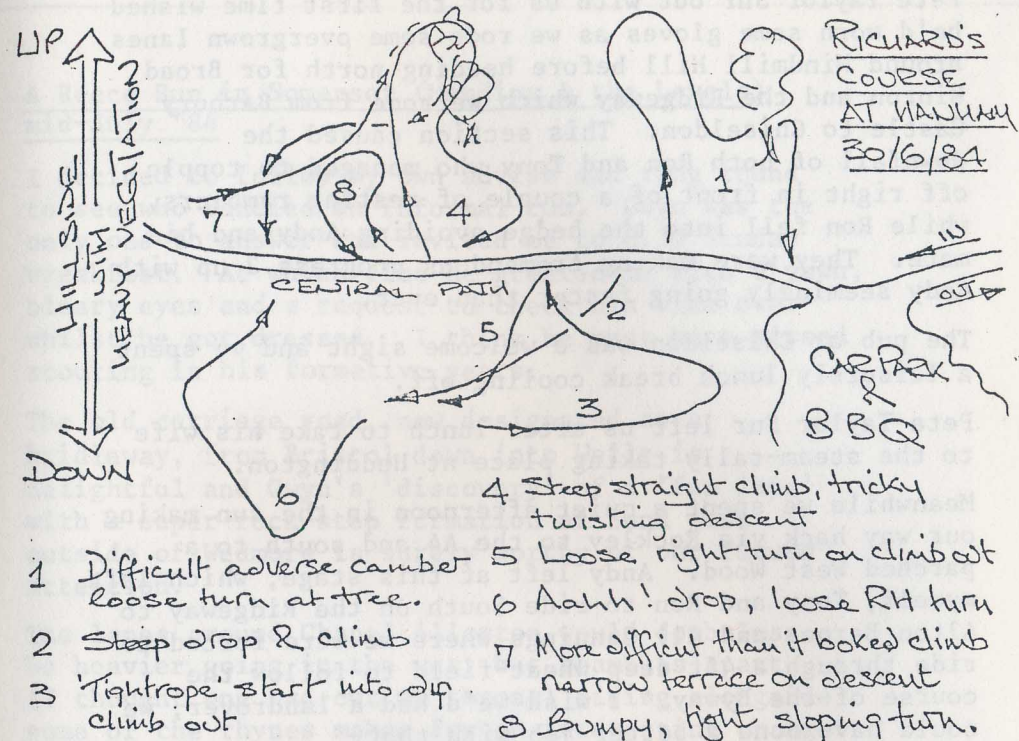 UP
VEGETATION
DOWN
RICHARD'S
COURSE
AT HANHAM
30/6/84
1
2
3
4
5
6
7
8
CENTRAL PATH
IN
OUT
CAR PARK
BBQ
1 Difficult adverse camber
loose turn at tree.
2 Steep drop & climb
3 Tightrope start into off
climb out
4 Steep straight climb, tricky
twisting descent
5 Loose right turn on climb out
6 Aaahh! drop, loose RH turn
7 More difficult than it looked climb
narrow terrace on descent
8 Bumpy, tight sloping turn